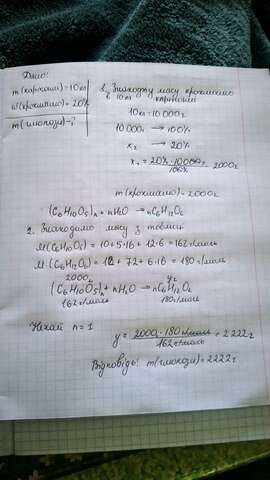 Дано:
m(картоплі)=10кг
ω(крохмалю)=20%
m(глюкози)-?
1. Знаходжу масу крохмалю
в 10кг картоплі
10кг=10000г
10000г → 100%
x г → 20%
x г = 20%·10000г / 100% = 2000г
m(крохмалю)=2000г
(C6H10O5)n + nH2O → nC6H12O6
2. Знаходимо масу з таблиці
M(C6H10O5) = 10+5·16+12·6=162г/моль
M(C6H12O6) = 12+72+6·16=180г/моль
2000г y г
(C6H10O5)n + nH2O → nC6H12O6
162г/моль 180г/моль
Нехай n=1
y = 2000г·180г/моль / 162г/моль = 2222г
Відповідь: m(глюкози)=2222г